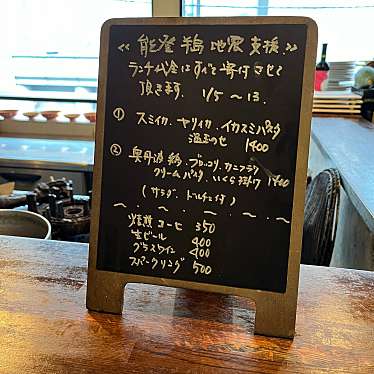 ≪ 能登 地震 支援 ≫
ランチ代金はすべて寄付させて
頂きます. 1/5 ～ 13.
① スミイカ、ヤリイカ、イカスミパスタ
温玉のせ 1400
② 奥丹波鶏、ブロッコリ、カニフラワ
クリームパスタ、いくら掛け 1700
(サラダ、ドルチェ付)
～ . ～ . ～ . ～ . ～
焙煎コーヒ 350
生ビール 400
グラスワイン 400
スパークリング 500